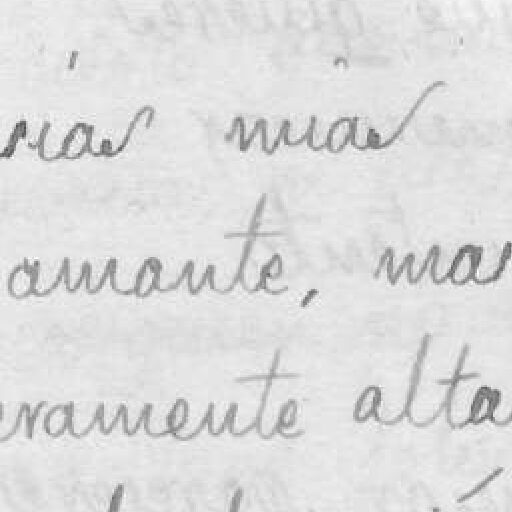 rias mias
amante, mas
eramente alta